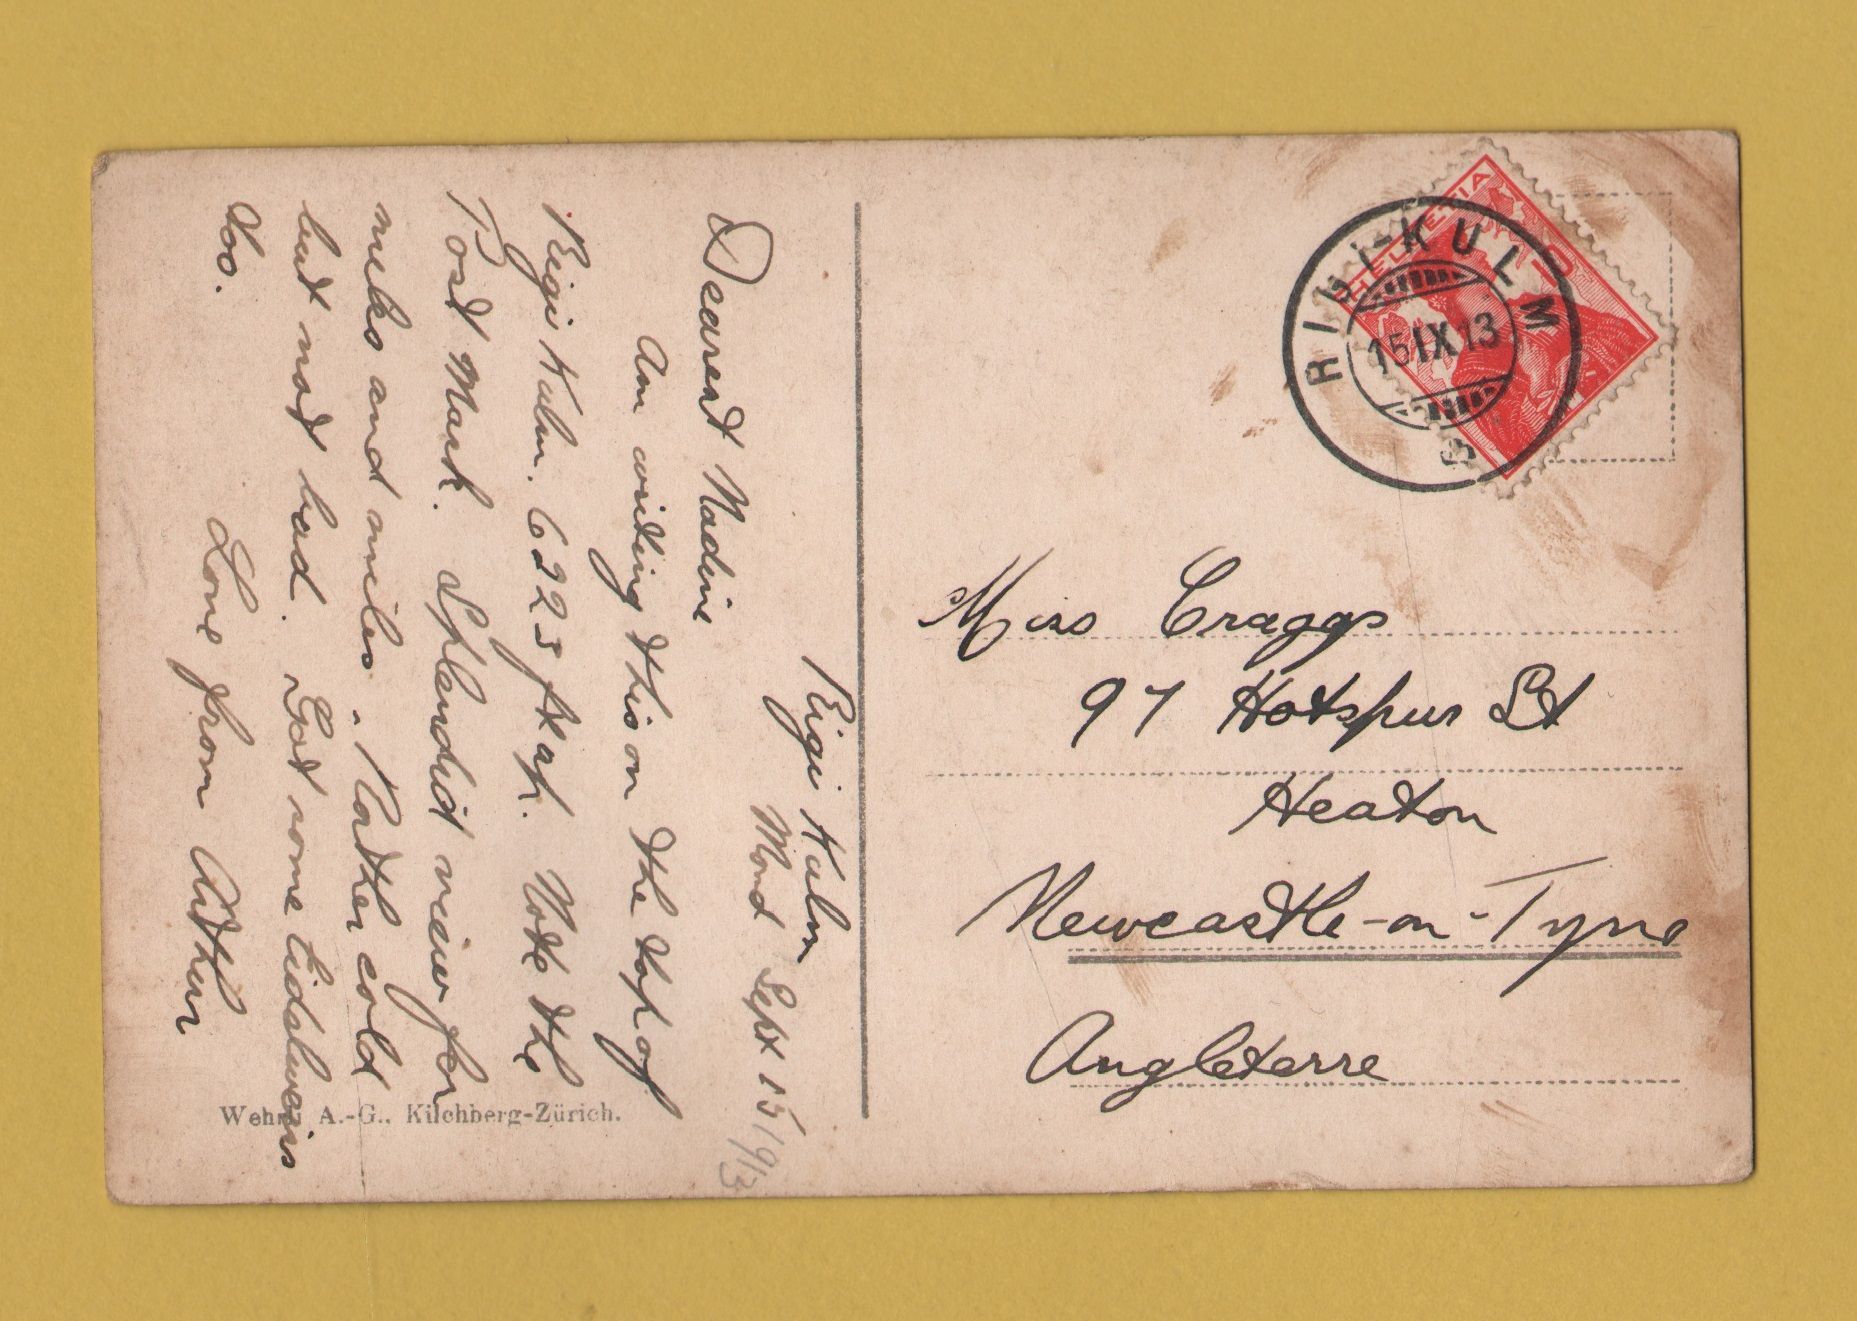 Rigi Kulm
Mond Sept 15/9/13
Dearest Nadine
Am writing this on the top of
Rigi Kulm. 6223 ft up. Note the
Post Mark. Splendid view for
miles and miles. Rather cold
but not bad. Got some Eidalweis
too.
Love from Arthur
Wehrli A.-G., Kilchberg-Zürich.
HELVETIA
RIGI-KULM
15 IX 13
Miss Craggs
97 Hotspur St
Heaton
Newcastle-on-Tyne
Angleterre